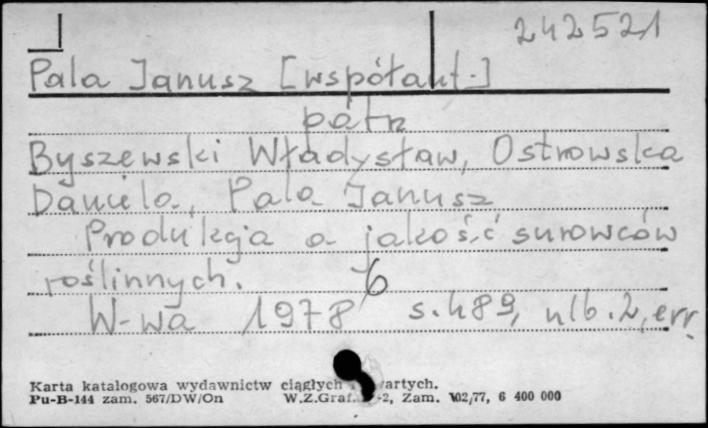 242521
Pala Janusz [współaut.]
patrz
Byszewski Władysław, Ostrowska
Daniela, Pala Janusz
Produkcja a jakość surowców
roślinnych. 6
W-wa 1978 s. 489, nlb. 2, err.
Karta katalogowa wydawnictw ciągłych artych.
Pu-B-144 zam. 567/DW/On W.Z.Graf. -2, Zam. 102/77, 6 400 000